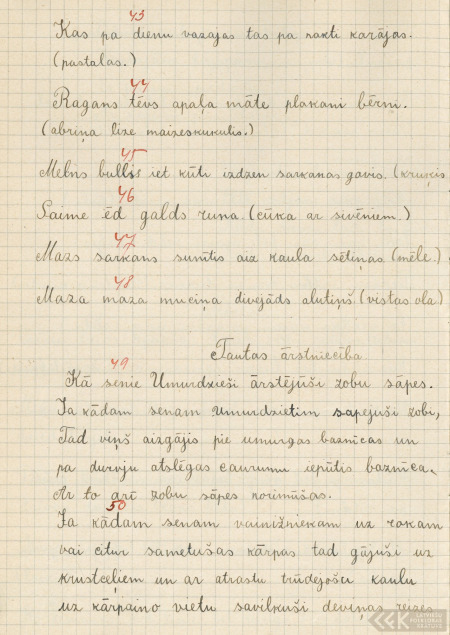 43
Kas pa dienu vazajas tas pa nakti karājas.
(pastalas.)
44
Ragans tēvs apaļa māte plakani bērni.
(abriņa lize maizeskukulis.)
45
Melns bullis iet kūtī izdzen sarkanas govis. (kruķis
46
Saime ēd galds runa. (cūka ar sivēniem.)
47
Mazs sarkans sunītis aiz kaula sētiņas (mēle.)
48
Maza maza muciņa divejāds alutiņš (vistas ola)
Tautas ārstniecība
49
Kā senie Umurdzieši ārstējūši zobu sāpes.
Ja kādam senam umurdzietim sapejuši zobi,
Tad viņš aizgājis pie umurgas baznīcas un
pa durvju atslēgas caurumu iepūtis baznīca.
Ar to arī zobu sāpes norimūšas.
50
Ja kādam senam vainižniekam uz rokam
vai citur sametušas kārpas tad gājuši uz
krustceļiem un ar atrastu trūdejošu kaulu
uz kārpaino vietu savilkuši deviņas reizes
LATVIEŠU FOLKLORAS KRĀTUVE